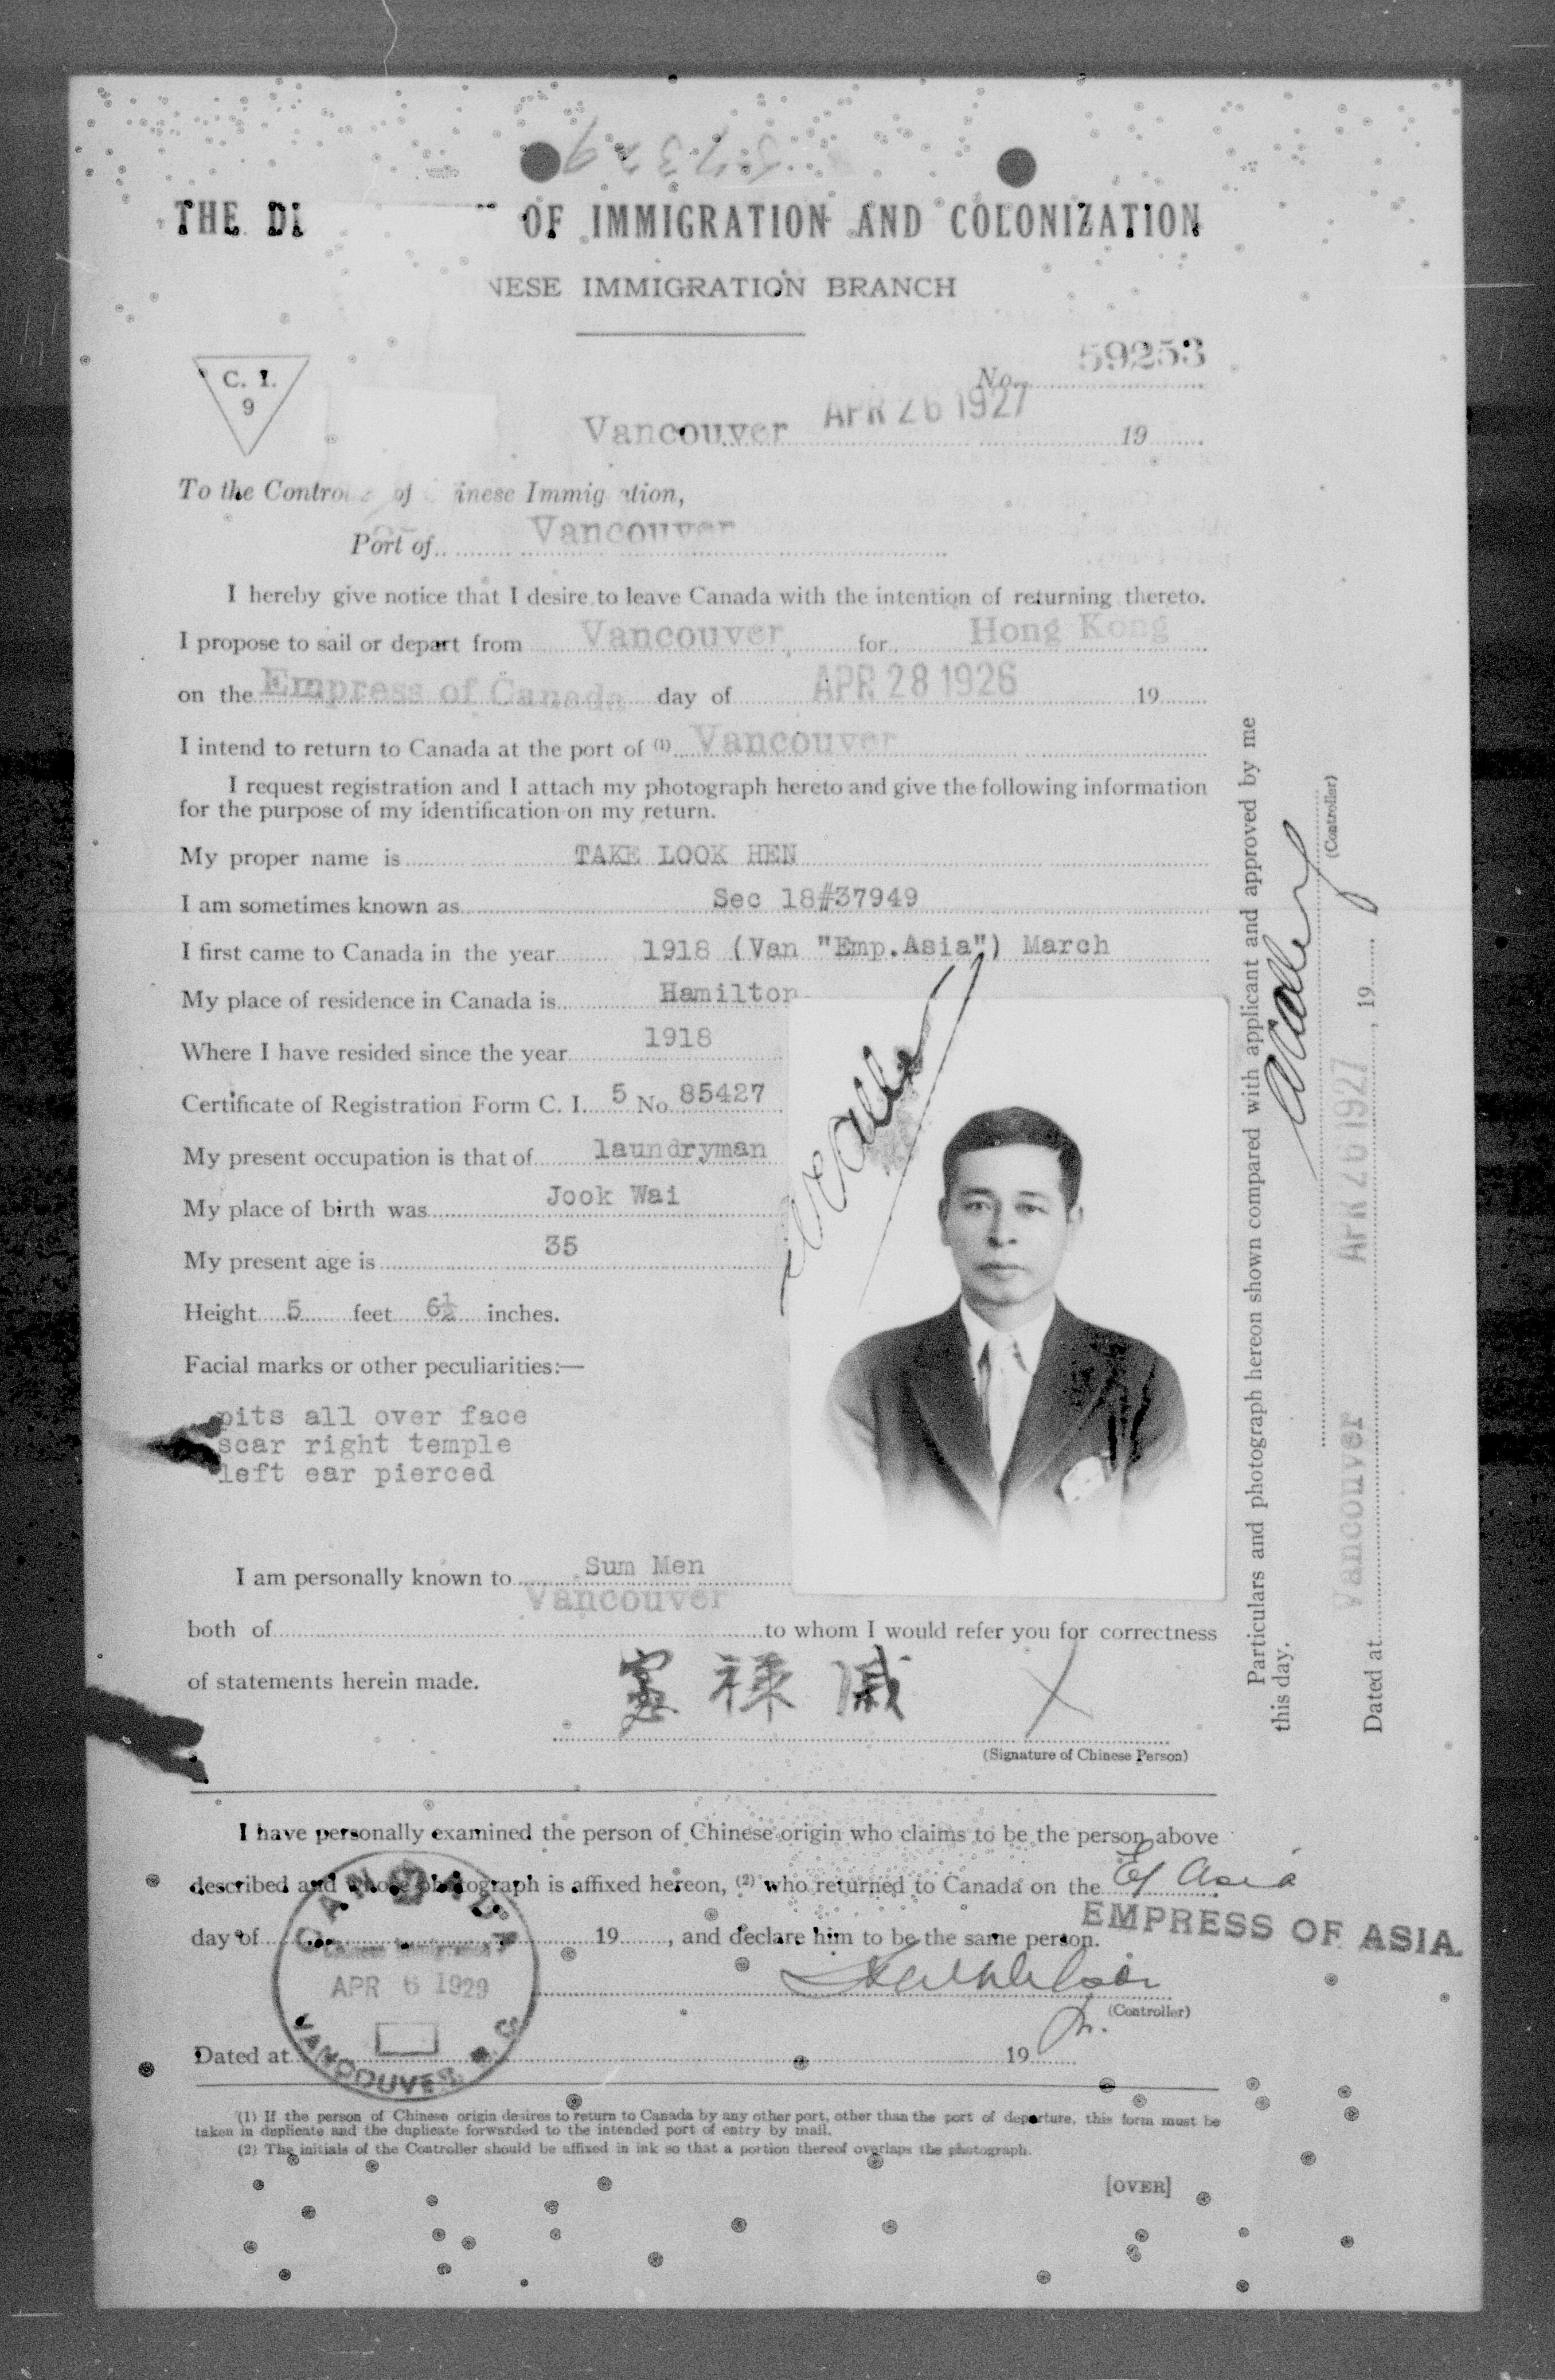 57329
THE DE OF IMMIGRATION AND COLONIZATION
NESE IMMIGRATION BRANCH
C. I.
9
No. 59253
Vancouver APR 26 1927 19
To the Contro of inese Immig ation,
Port of Vancouver
I hereby give notice that I desire to leave Canada with the intention of returning thereto.
I propose to sail or depart from Vancouver, for Hong Kong
on the Empress of Canada day of APR 28 1926 19
I intend to return to Canada at the port of (1) Vancouver
I request registration and I attach my photograph hereto and give the following information
for the purpose of my identification on my return.
My proper name is TAKE LOOK HEN
I am sometimes known as Sec 18#37949
I first came to Canada in the year 1918 (Van "Emp.Asia") March
My place of residence in Canada is Hamilton
Where I have resided since the year 1918
Certificate of Registration Form C. I. 5 No. 85427
My present occupation is that of laundryman
My place of birth was Jook Wai
My present age is 35
Height 5 feet 6½ inches.
Facial marks or other peculiarities:—
pits all over face
scar right temple
left ear pierced
I am personally known to Sum Men
Vancouver
both of to whom I would refer you for correctness
of statements herein made.
憲 祿 戚 X
(Signature of Chinese Person)
I have personally examined the person of Chinese origin who claims to be the person above
described and whose photograph is affixed hereon, (2) who returned to Canada on the E/ Asia
day of 19 , and declare him to be the same person.
EMPRESS OF ASIA.
CANADA
Chinese Immigration
APR 6 1929
VANCOUVER B.C.
(Controller)
Dated at 19
(1) If the person of Chinese origin desires to return to Canada by any other port, other than the port of departure, this form must be
taken in duplicate and the duplicate forwarded to the intended port of entry by mail.
(2) The initials of the Controller should be affixed in ink so that a portion thereof overlaps the photograph.
[OVER]
Particulars and photograph hereon shown compared with applicant and approved by me
this day.
(Controller)
Dated at Vancouver APR 26 1927, 19